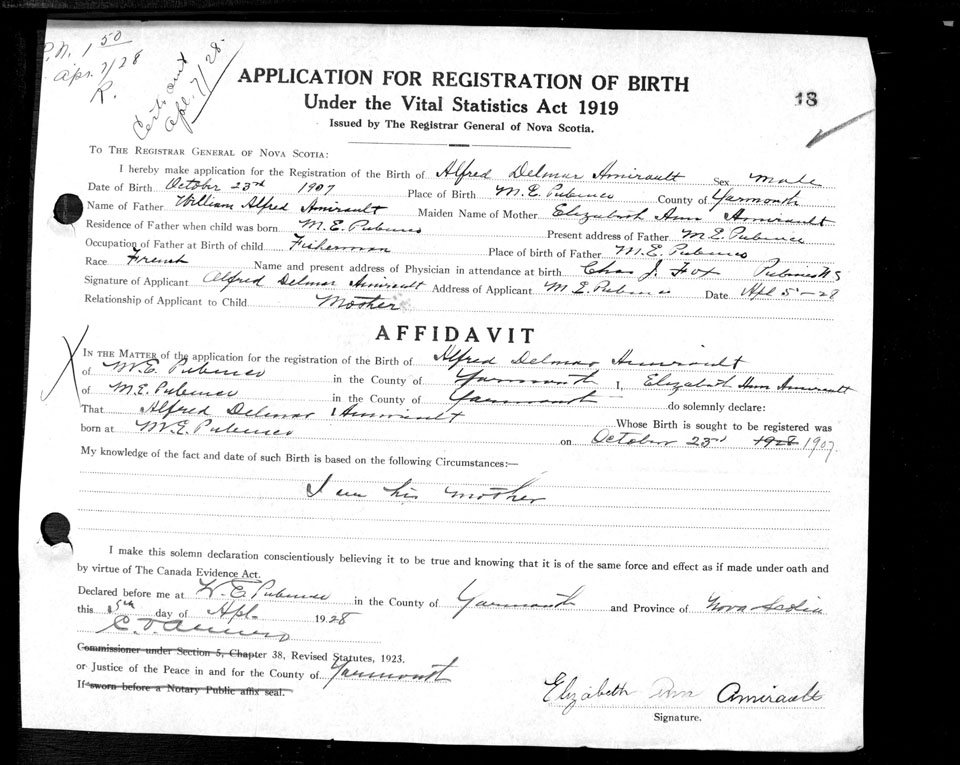 P.N. 1 50
Apr. 7/28
R.
Certs. sent
Apl. 7/28.
APPLICATION FOR REGISTRATION OF BIRTH
Under the Vital Statistics Act 1919
Issued by The Registrar General of Nova Scotia.
18
TO THE REGISTRAR GENERAL OF NOVA SCOTIA:
I hereby make application for the Registration of the Birth of Alfred Delmar Amirault Sex male
Date of Birth October 23rd 1907 Place of Birth M. E. Pubnico County of Yarmouth
Name of Father William Alfred Amirault Maiden Name of Mother Elizabeth Ann Amirault
Residence of Father when child was born M. E. Pubnico Present address of Father M. E. Pubnico
Occupation of Father at Birth of child Fisherman Place of birth of Father M. E. Pubnico
Race French Name and present address of Physician in attendance at birth Chas J. Fox Pubnico N S
Signature of Applicant Alfred Delmar Amirault Address of Applicant M E. Pubnico Date Apl 5 - 28
Relationship of Applicant to Child Mother
AFFIDAVIT
IN THE MATTER of the application for the registration of the Birth of Alfred Delmar Amirault
of M. E. Pubnico in the County of Yarmouth I, Elizabeth Ann Amirault
of M. E. Pubnico in the County of Yarmouth do solemnly declare:
That Alfred Delmar Amirault Whose Birth is sought to be registered was
born at M. E. Pubnico on October 23rd 1928 1907.
My knowledge of the fact and date of such Birth is based on the following Circumstances:—
I am his mother
I make this solemn declaration conscientiously believing it to be true and knowing that it is of the same force and effect as if made under oath and
by virtue of The Canada Evidence Act.
Declared before me at W. E. Pubnico in the County of Yarmouth and Province of Nova Scotia
this 5th day of Apl. 1928
Commissioner under Section 5, Chapter 38, Revised Statutes, 1923.
or Justice of the Peace in and for the County of Yarmouth
If sworn before a Notary Public affix seal.
Elizabeth Ann Amirault
Signature.